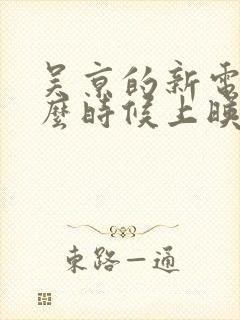 吴京的新電
麼時候上映
東路一通